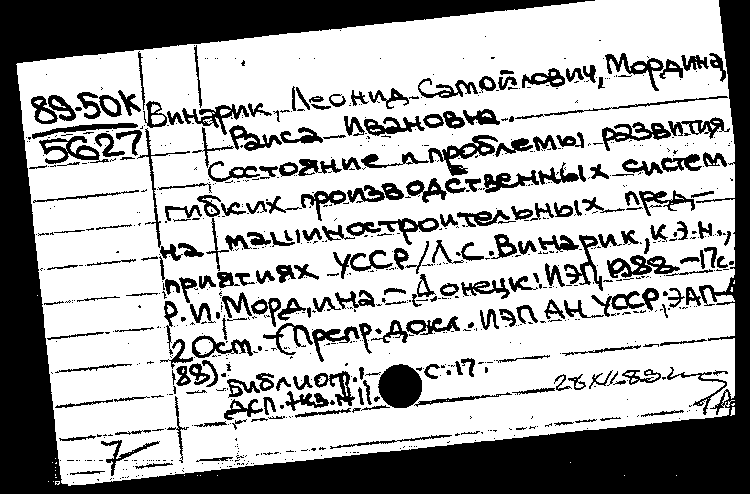 89-50К
5627
Винарик, Леонид Самойлович, Мордина,
Раиса Ивановна.
Состояние и проблемы развития
гибких производственных систем
на машиностроительных пред-
приятиях УССР / Л.С. Винарик, к.э.н.,
Р.И. Мордина. - Донецк: ИЭП, 1988. - 17с.
20см. - (Препр. докл. ИЭП АН УССР; ЭАП-
88).
Библиогр.: с. 17.
ДСП. экз. № 11.
7